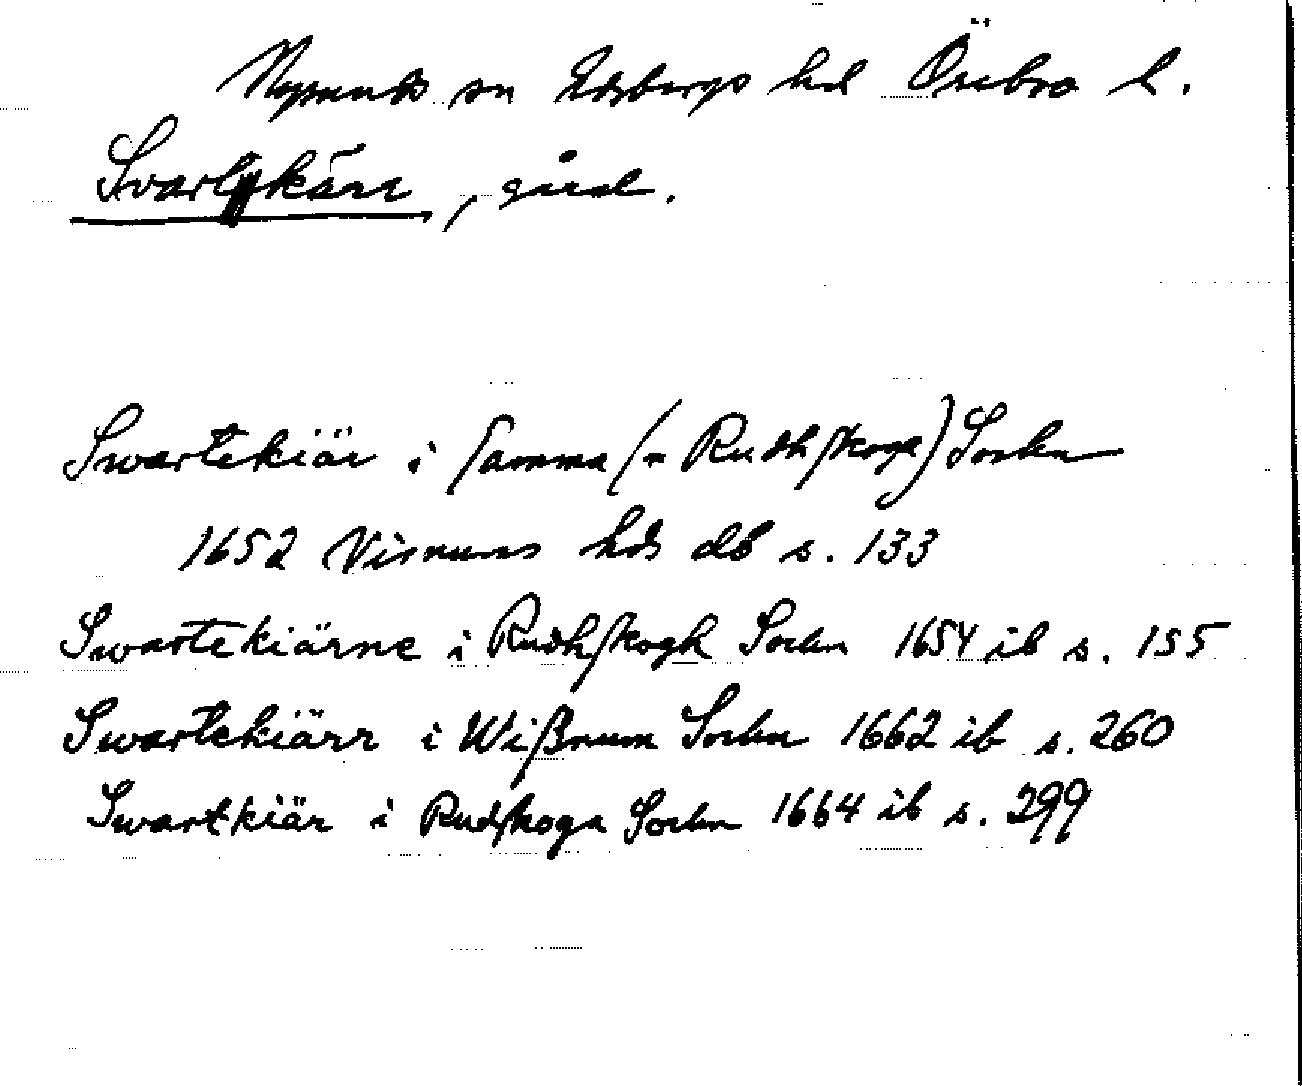 Nysunds sn Edsbergs hd Örebro l.
Svartkärr, gård.
Swartekiär i ſamma (= Rudhſkoga) Sochn
1652 Visnums hds db s. 133
Swartekiärne i Rudhſkogh Sochn 1654 ib s. 155
Swartekiärr i Wißnum Sochn 1662 ib s. 260
Swartkiär i Rudſkoga Sochn 1664 ib s. 299